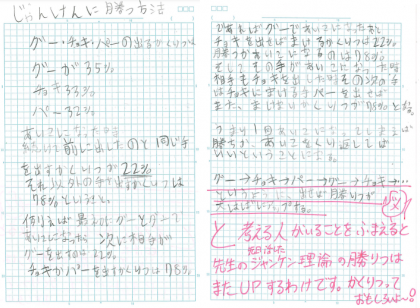 じゃんけんに勝つ方法
グー・チョキ・パーの出るかくりつは
グーが35%
チョキ33%
パー32%
あいこになった時
続けて前に出したのと同じ手
を出すかくりつが22%
それ以外の手が出るかくりつは
78%ということ。
例えば最初にグーとグーで
あいこになったら次に相手が
グーを出すのは22%
チョキかパーを出すかくりつは78%
であればグーであいこになったあと
チョキを出せばまけるかくりつは22%
勝つかあいこになるのは78%
そしてその手があいこになった時
相手もチョキを出した時その次の手
はチョキにまける手パーを出せば
また、まけないかくりつが78%となる。
つまり1回あいこになってしまえば
勝ちか、あいこをくり返して
いいということになる。
グー→チョキ→パー→グー→チョキ→…
というように出せば勝りつが
と考える人がいることをふまえると
先生のジャンケン理論の勝りつは
またUPするわけです。かくりつって
おもしろいよ〜